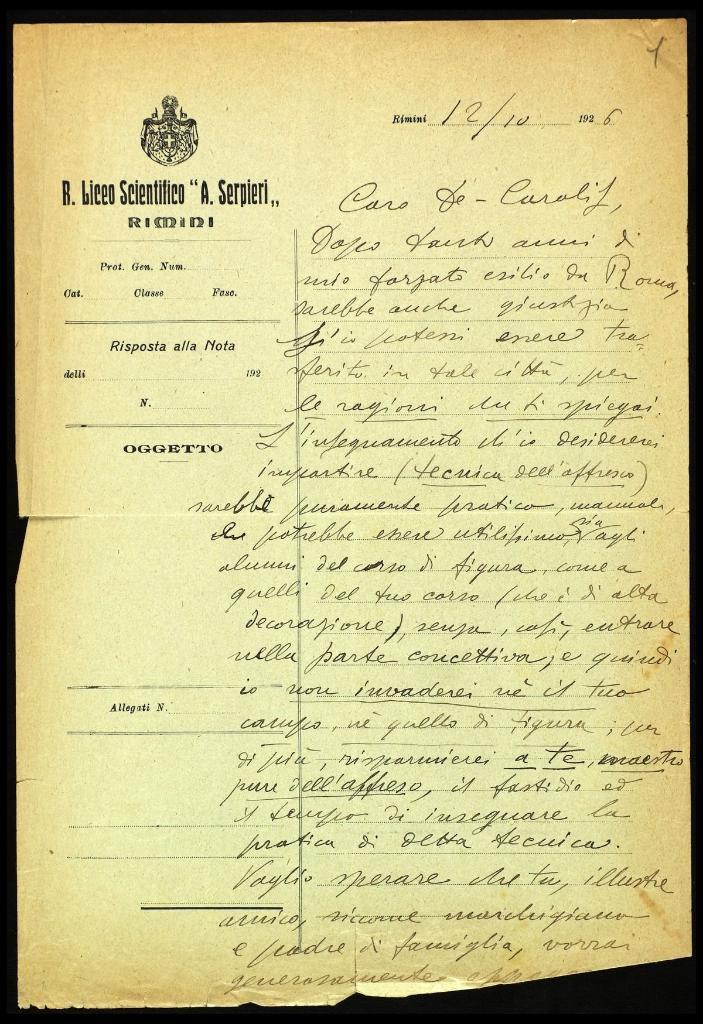 1
Rimini 12/10 1926
R. Liceo Scientifico "A. Serpieri"
RIMINI
Prot. Gen. Num.
Cat. Classe Fasc.
Risposta alla Nota
delli 192
N.
OGGETTO
Allegati N.
Caro De-Carolis,
Dopo tanti anni di
mio forzato esilio da Roma,
sarebbe anche giustizia
ch'io potessi essere tra-
sferito in tale città, per
le ragioni che ti spiegai.
L'insegnamento ch'io desidererei
impartire (tecnica dell'affresco)
sarebbe puramente pratico, manuale,
che potrebbe essere utilissimo, sia agli
alunni del corso di figura, come a
quelli del tuo corso (che è di alta
decorazione), senza, così, entrare
nella parte concettiva, e quindi
io non invaderei nè il tuo
campo, nè quello di figura; per
di più, risparmierei a te, maestro
pure dell'affreso, il fastidio ed
il tempo di insegnare la
pratica di detta tecnica.
Voglio sperare che tu, illustre
amico, siccome marchigiano
e padre di famiglia, vorrai
generosamente